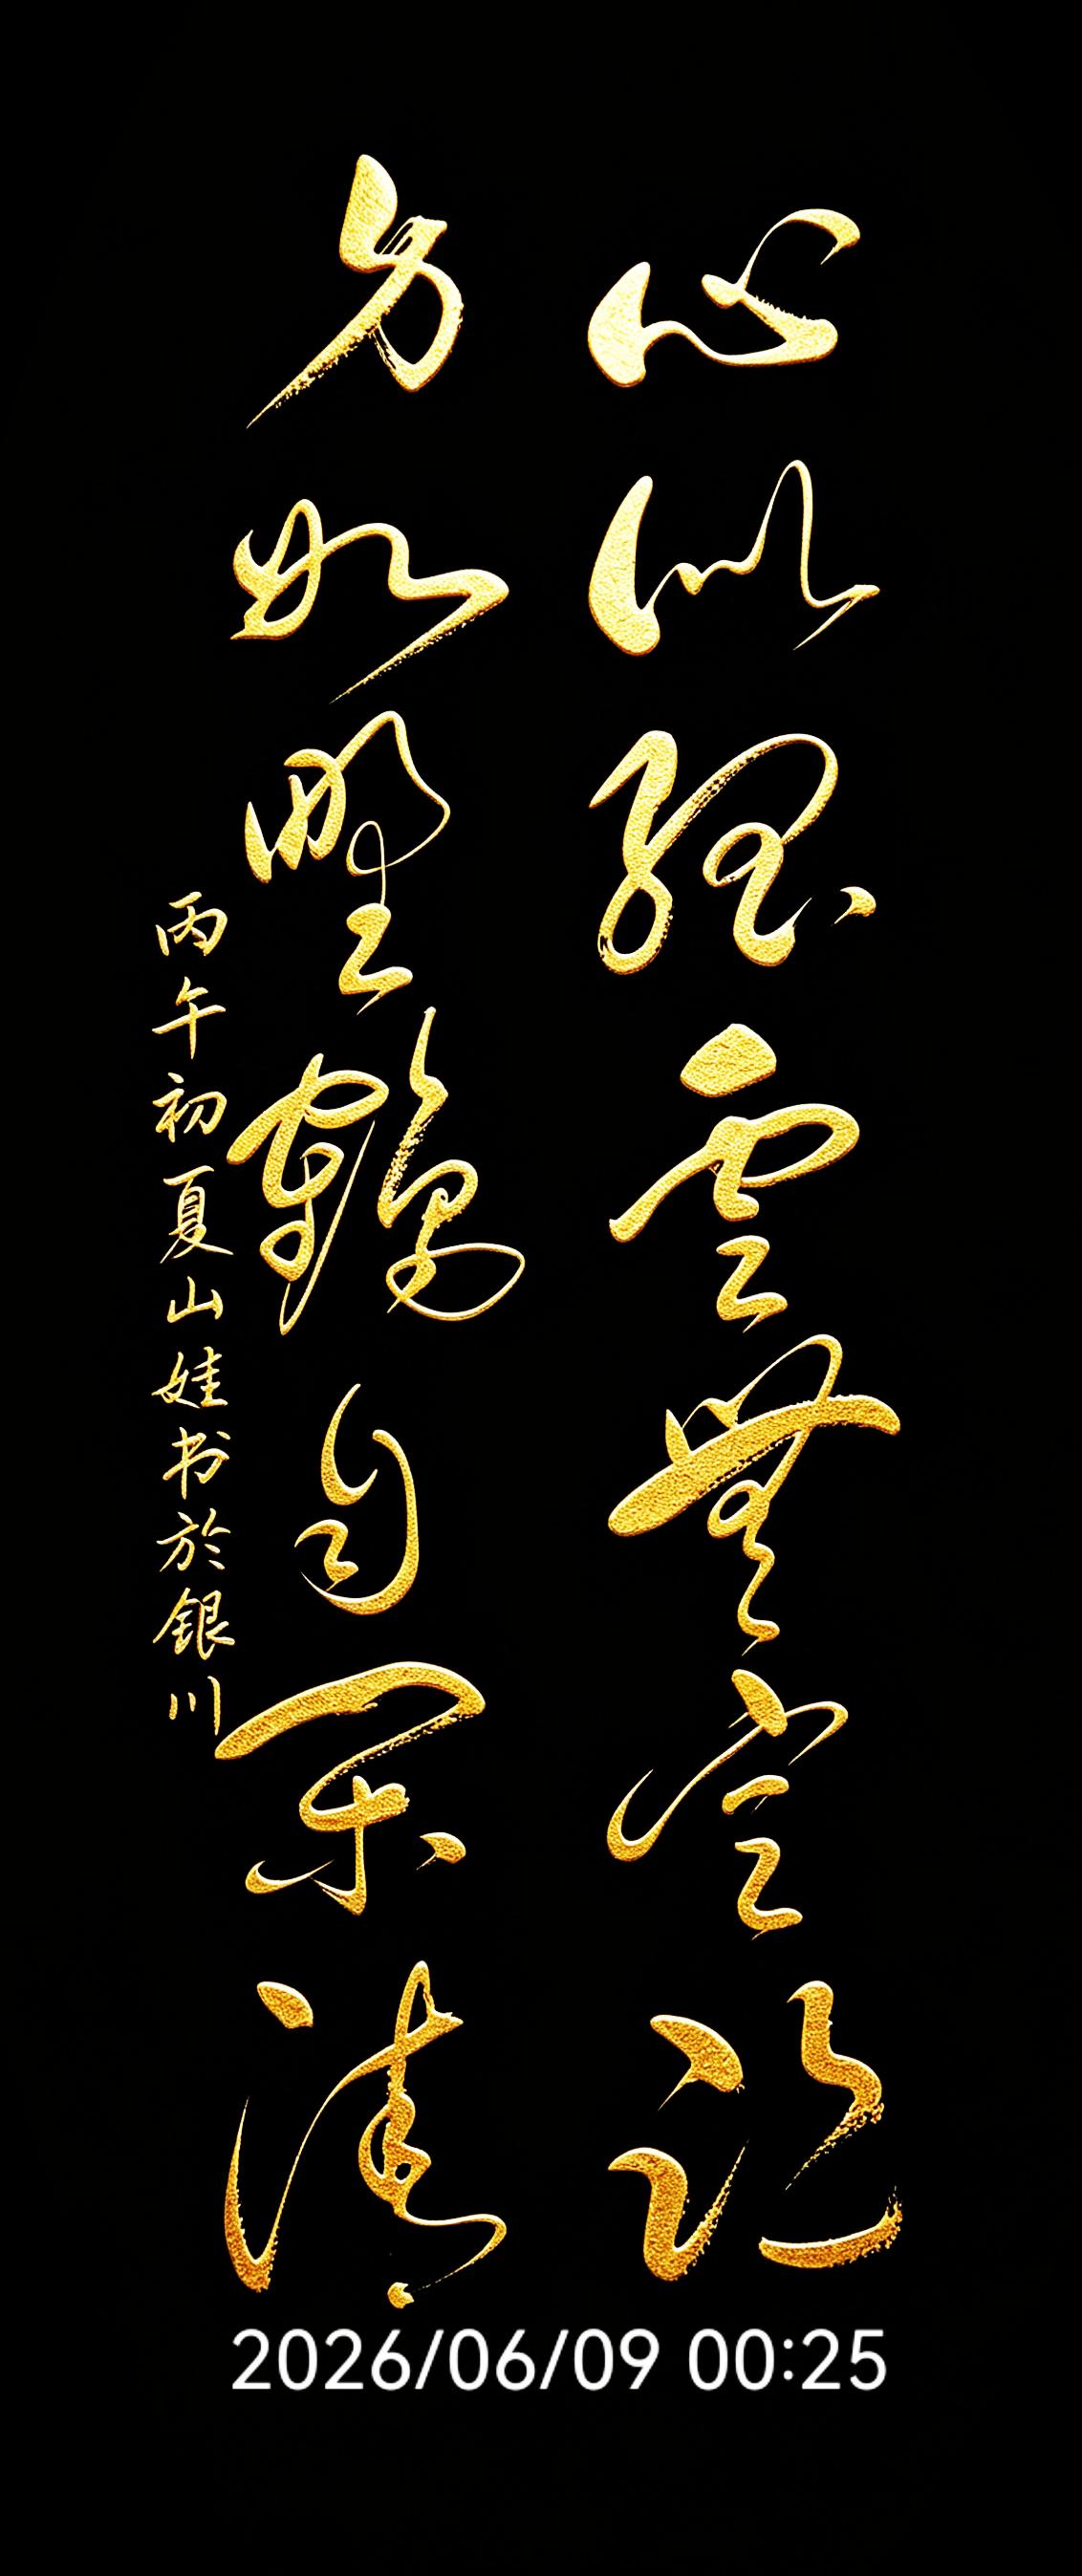 心似孤雲無定
身如野鶴自閑清
丙午初夏山娃书於銀川
2026/06/09 00:25